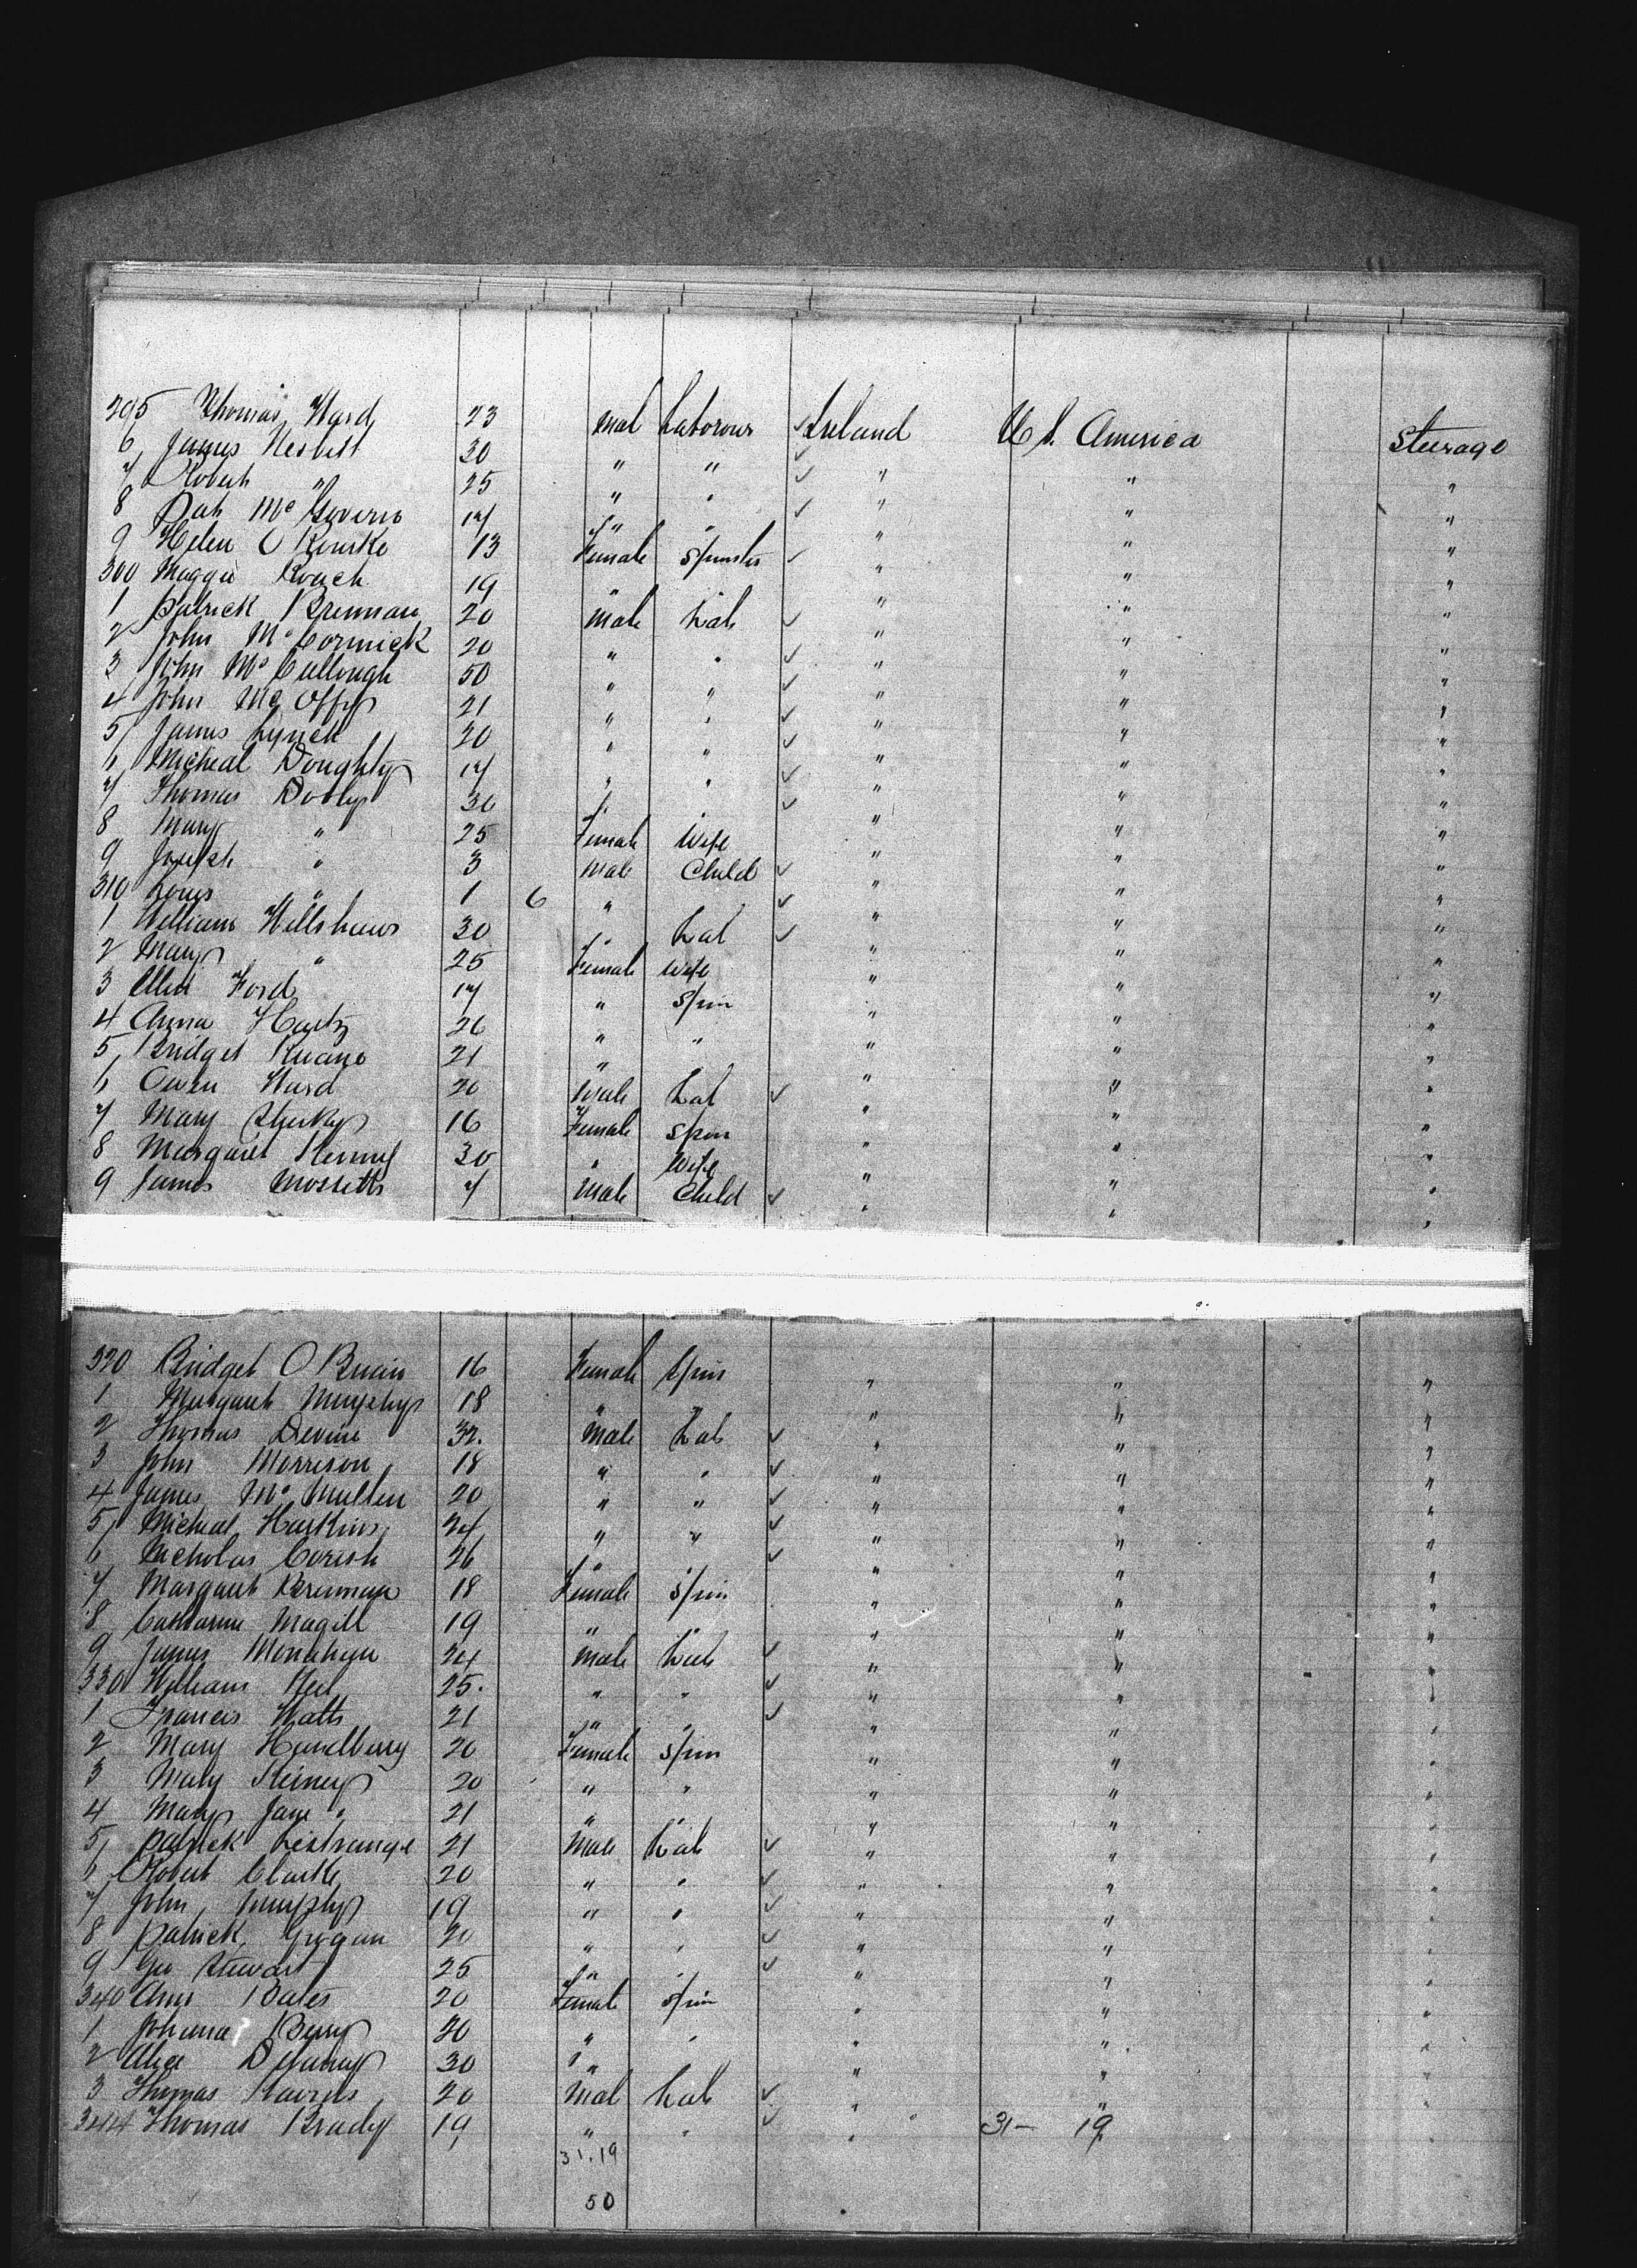 295 Thomas Ward 23 Mal Laborour ✓ Ireland U S. America Steerage
6 James Nesbitt 30 " " ✓ " " "
7 Robert " 25 " " ✓ " " "
8 Pat McGovern 17 " " ✓ " " "
9 Helen O Rourke 13 Female Spinster ✓ " " "
300 Maggie Roach 19 " " " "
1 Patrick Brennan 20 Male Lab ✓ " " "
2 John McCormick 20 " " ✓ " " "
3 John McCullough 50 " " ✓ " " "
4 John Mc Offy 21 " " ✓ " " "
5 James Lynch 20 " " ✓ " " "
6 Micheal Doughty 17 " " ✓ " " "
7 Thomas Dooly 30 " " ✓ " " "
8 Mary " 25 Female Wife " " "
9 Joseph " 3 Male Child ✓ " " "
310 Louis " 1 6 " ✓ " " "
1 William Willshaw 30 " Lab ✓ " " "
2 Mary " 25 Female Wife " " "
3 Ellen Ford 17 " Spin " " "
4 Anna Hartz 26 " " " " "
5 Bridget Ruane 21 " " " "
6 Owen Ward 20 Male Lab ✓ " " "
7 Mary 16 Female Spin " " "
8 Margaret Kenny 30 " Wife " " "
9 James 7 Male Child ✓ " " "
320 Bridget O Briain 16 Female Spin " " "
1 Margaret Murphy 18 " " " " "
2 Thomas Devine 32. Male Lab ✓ " " "
3 John Morrison 18 " " ✓ " " "
4 James McMullen 20 " " ✓ " " "
5 Micheal Harkins 24 " " ✓ " " "
6 Nicholas Corish 26 " ✓ " " "
7 Margaret Brennan 18 Female Spin " " "
8 Catharine Magill 19 " " " " "
9 James Monahan 24 Male Lab ✓ " " "
330 William Neil 25. " " ✓ " " "
1 Francis Watts 21 " " ✓ " " "
2 Mary Handberry 20 Female Spin " " "
3 Mary Keiney 20 " " " " "
4 Mary Jane " 21 " " " " "
5 Patrick Lestrange 21 Male Lab ✓ " " "
6 Robert Clarke 20 " " ✓ " " "
7 John Murphy 19 " " ✓ " " "
8 Patrick Grogan 20 " " ✓ " " "
9 Geo Stewart 25 " " ✓ " " "
340 Ann Bates 20 Female Spin " " "
1 Johana Berry 20 " " " " "
2 Alice Delaney 30 " " " "
3 Thomas 20 Mal Lab ✓ " " "
344 Thomas Brady 19 " " ✓ " 31 - 19 "
31.19
50